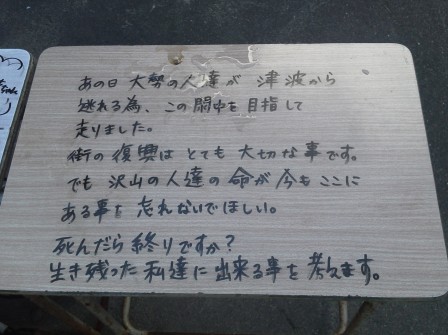 あの日 大勢の人達が 津波から
逃れる為、この閖中を目指して
走りました。
街の復興は とても 大切な事です。
でも 沢山の人達の 命が今もここに
ある事を 忘れないでほしい。
死んだら終りですか?
生き残った私達に出来る事を考えます。